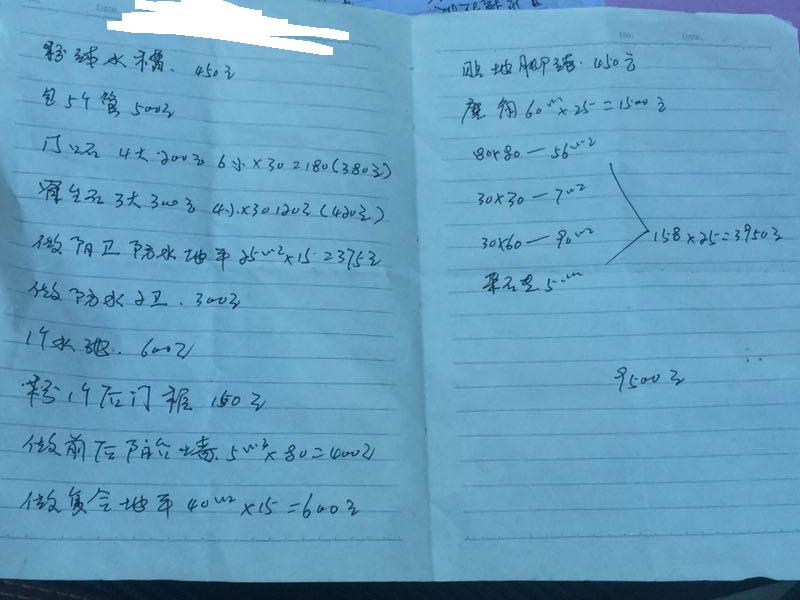 粉线水槽. 450元
包5个管 500元
门口石 4大 200元 6小×30=180(380元)
3大300元 4小×30 120元(420元)
做阳卫防水地平 25m²×15=375元
做防水2卫. 300元
1个水池. 600元
粉1个后门框 150元
做前后阳台墙. 5m²×80=400元
做复合地平 40m²×15=600元
No. Date.
贴地脚线. 450元
磨角60m×25=1500元
80×80—56m²
30×30—7m²
30×60—90m²
158×25=3950元
5m²
9500元